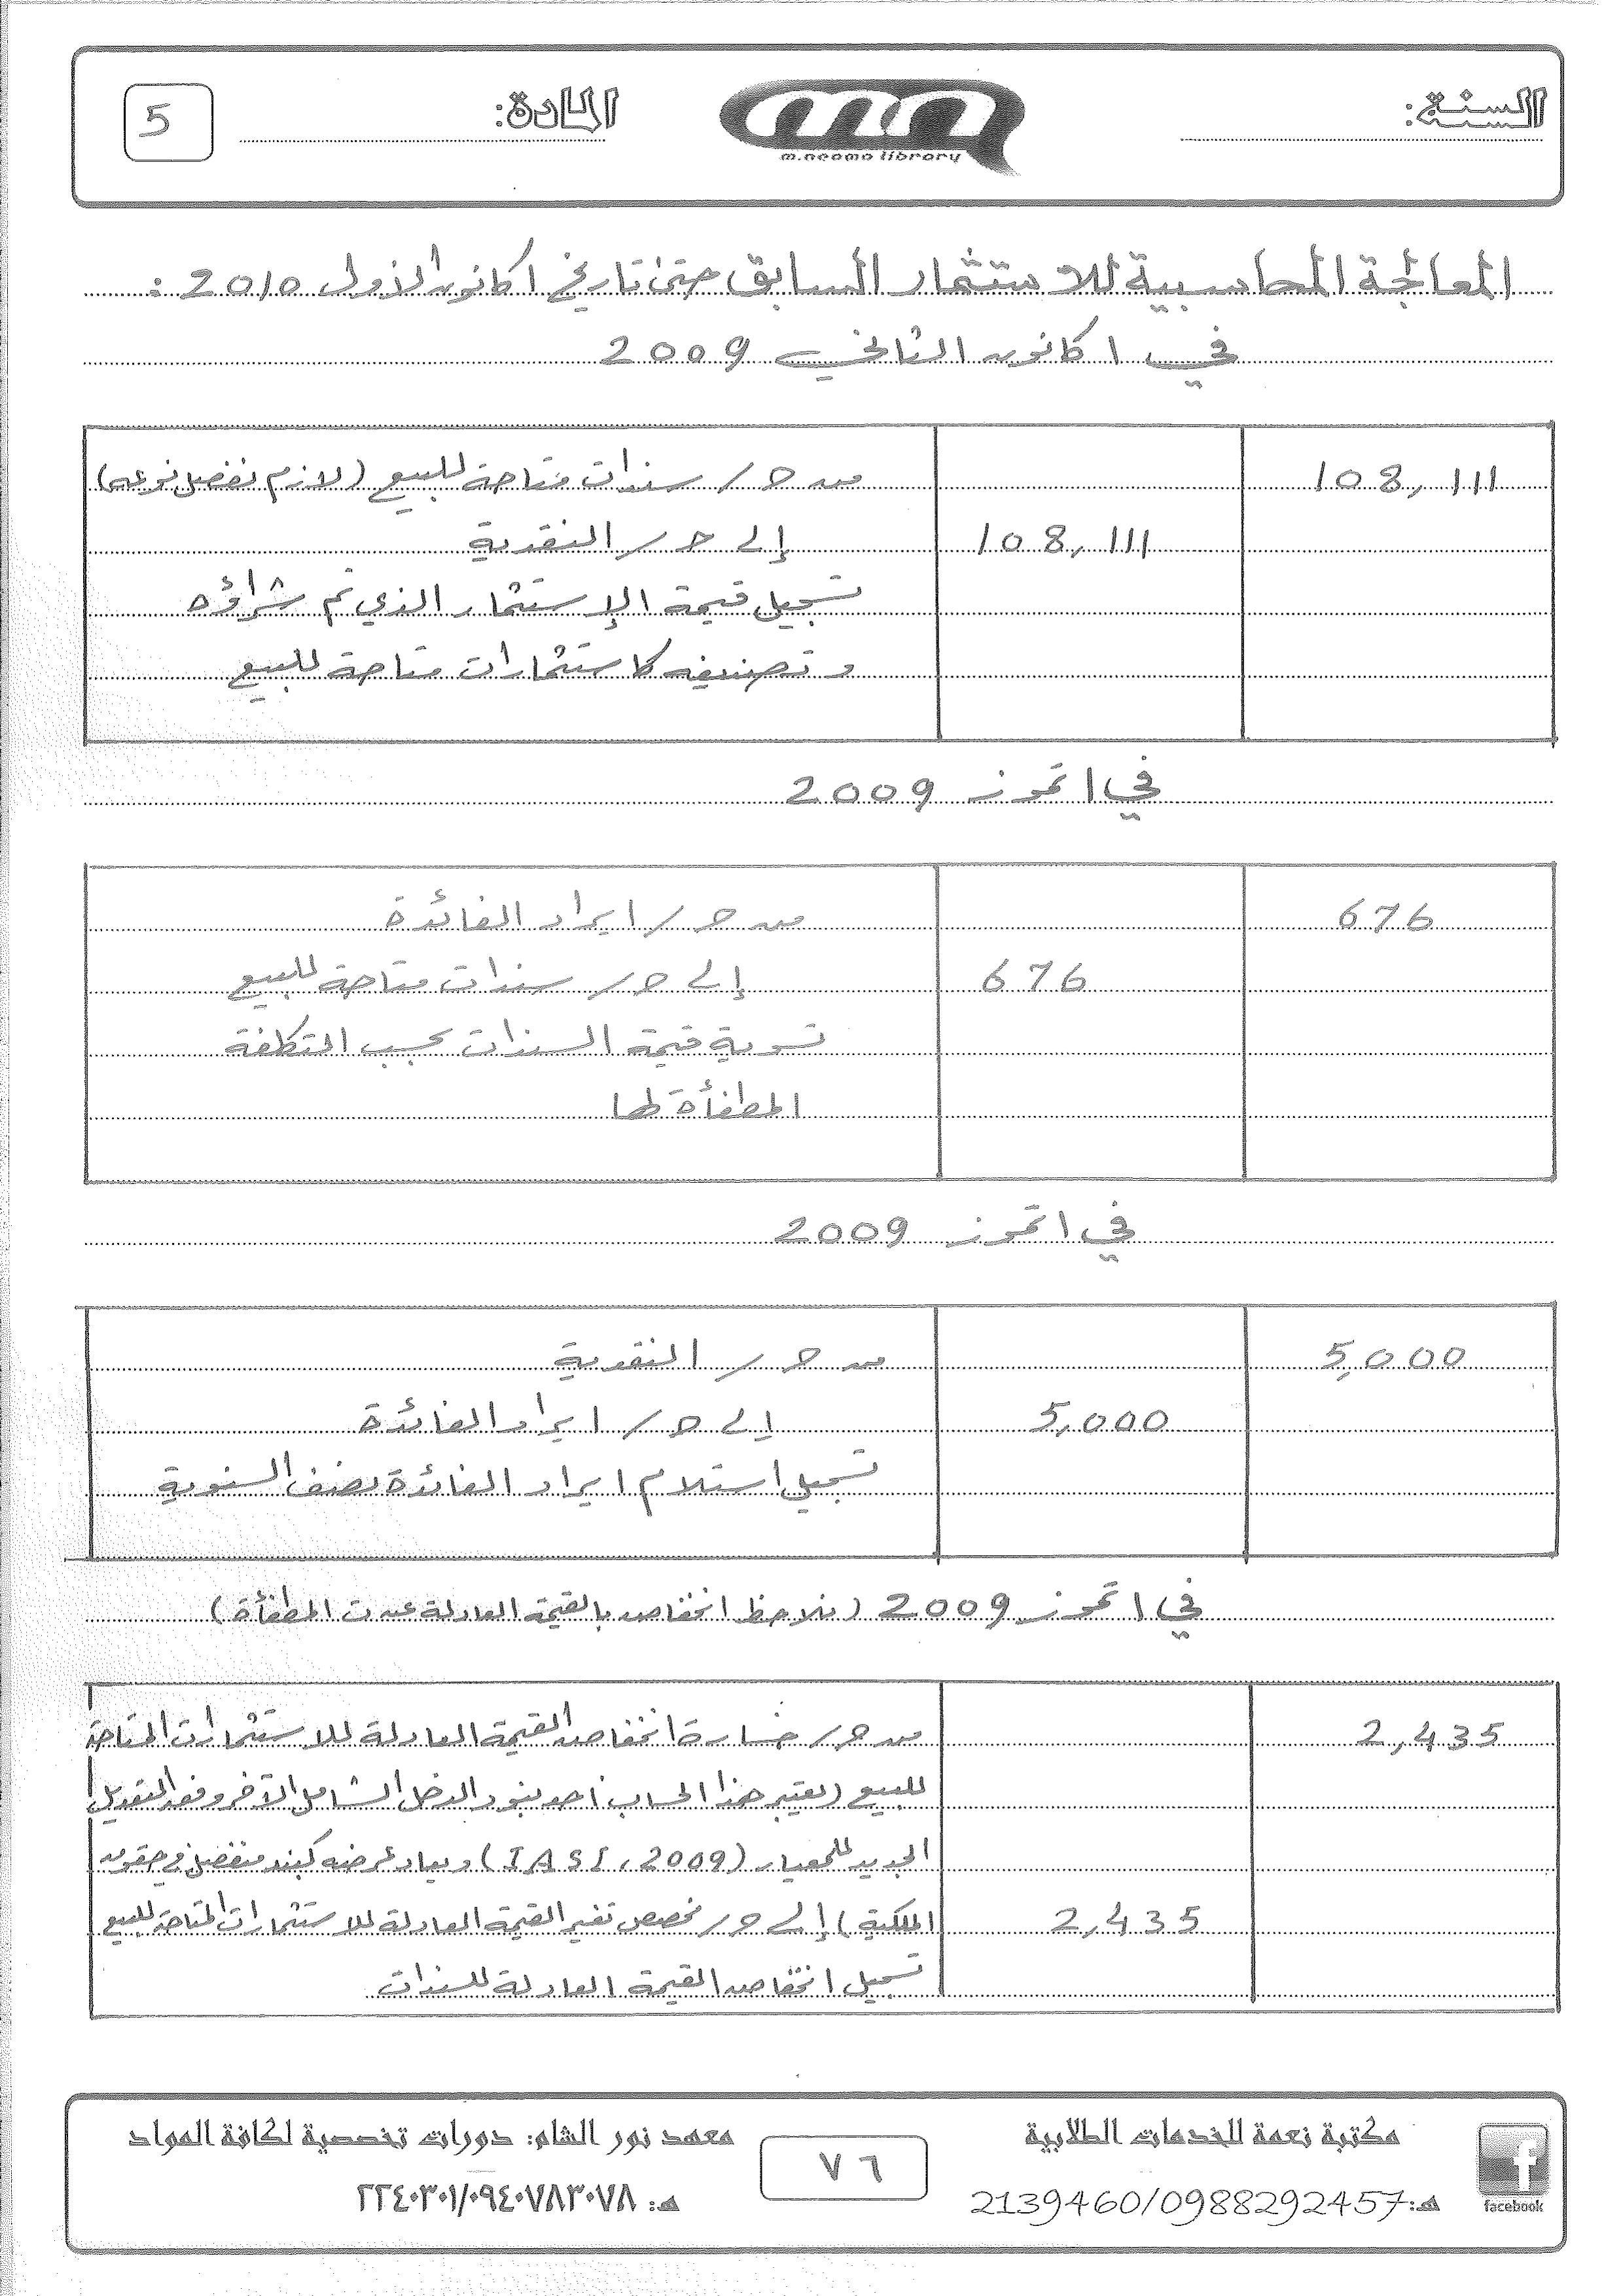 السنة:
m.neama library
المادة:
5
المعالجة المحاسبية للاستثمار السابق حتى تاريخ 1 كانون الأول 2010 :
في 1 كانون الثاني 2009
108,111 من حـ/ سندات متاحة للبيع (لازم نفصل نوعه)
108,111 إلى حـ/ النقدية
تسجيل قيمة الاستثمار الذي تم شراؤه
وتصنيفه كاستثمارات متاحة للبيع
في 1 تموز 2009
676 من حـ/ ايراد الفائدة
676 إلى حـ/ سندات متاحة للبيع
تسوية قيمة السندات بحسب التكلفة
المطفأة لها
في 1 تموز 2009
5,000 من حـ/ النقدية
5,000 إلى حـ/ ايراد الفائدة
تسجيل استلام ايراد الفائدة نصف السنوية
في 1 تموز 2009 (نلاحظ انخفاض بالقيمة العادلة عن ت المطفأة)
2,435 من حـ/ خسارة انخفاض القيمة العادلة للاستثمارات المتاحة
للبيع (يعتبر هذا الحساب أحد بنود الدخل الشامل الآخر وفق التعديل
الجديد للمعيار (IAS1, 2009) ويعاد عرضه كبند منفصل في حقوق
2,435 الملكية) إلى حـ/ مخصص تغير القيمة العادلة للاستثمارات المتاحة للبيع
تسجيل انخفاض القيمة العادلة للسندات
facebook
مكتبة نعمة للخدمات الطلابية
هـ:2139460/0988292457
٧٦
معهد نور الشام: دورات تخصصية لكافة المواد
هـ: ٢٢٤٠٣٠١/٠٩٤٠٧٨٣٠٧٨